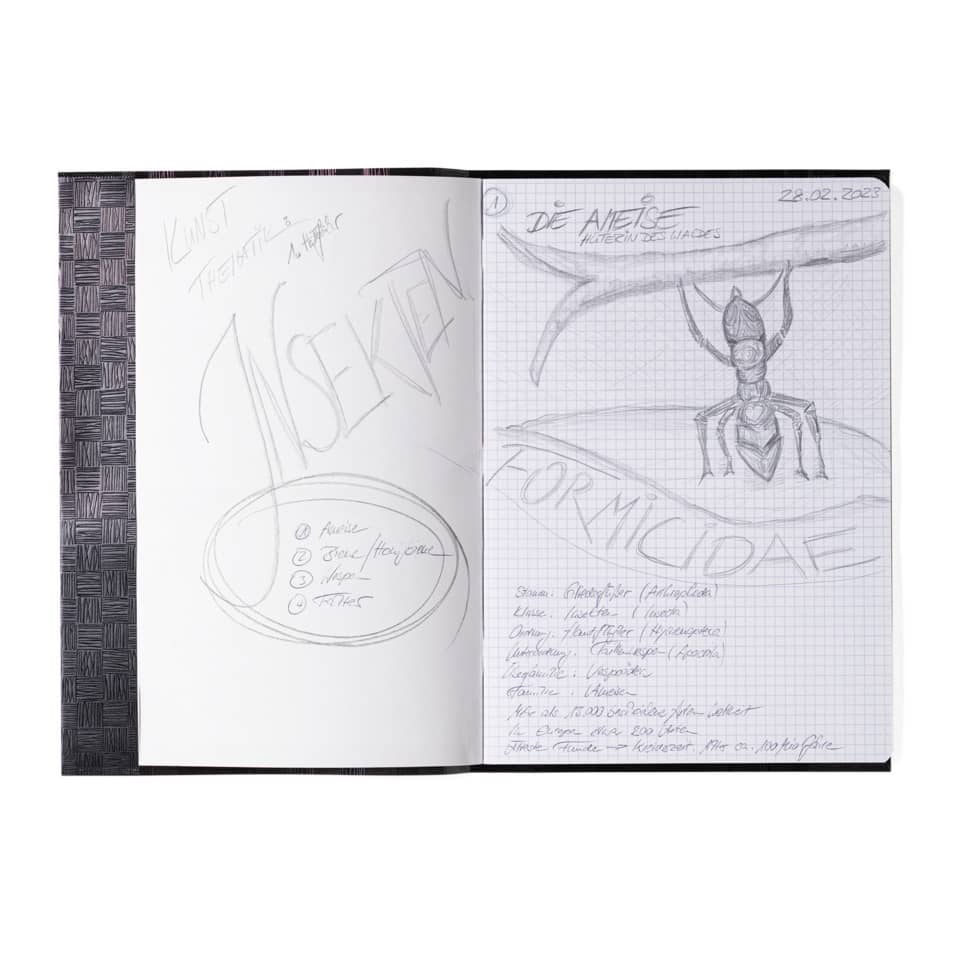 KUNST
THEMATIK
INSEKTEN
① Ameise
② Biene/Honigbiene
③ Wespe
④ Falter
①
28.02.2023
DIE AMEISE
HÜTERIN DES WALDES
FORMICIDAE
Stamm: Gliederfüßer (Arthropoda)
Klasse: Insekten (Insecta)
Ordnung: Hautflügler (Hymenoptera)
Unterordnung: Taillenwespen (Apocrita)
Überfamilie: Vespoidea
Familie: Ameisen
Mehr als 13.000 Arten
In Europa etwa 200 Arten
Funde → Kreidezeit. ca. 100 Mio Jahre